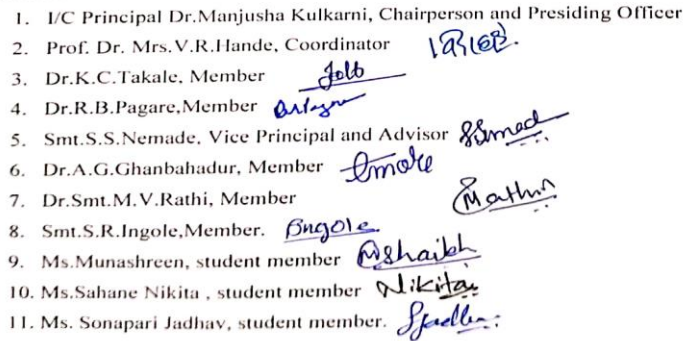 1. I/C Principal Dr.Manjusha Kulkarni, Chairperson and Presiding Officer
2. Prof. Dr. Mrs.V.R.Hande, Coordinator
3. Dr.K.C.Takale, Member
4. Dr.R.B.Pagare,Member
5. Smt.S.S.Nemade, Vice Principal and Advisor
6. Dr.A.G.Ghanbahadur, Member
7. Dr.Smt.M.V.Rathi, Member
8. Smt.S.R.Ingole,Member. Bngole
9. Ms.Munashreen, student member Mshaikh
10. Ms.Sahane Nikita , student member Nikita
11. Ms. Sonapari Jadhav, student member.